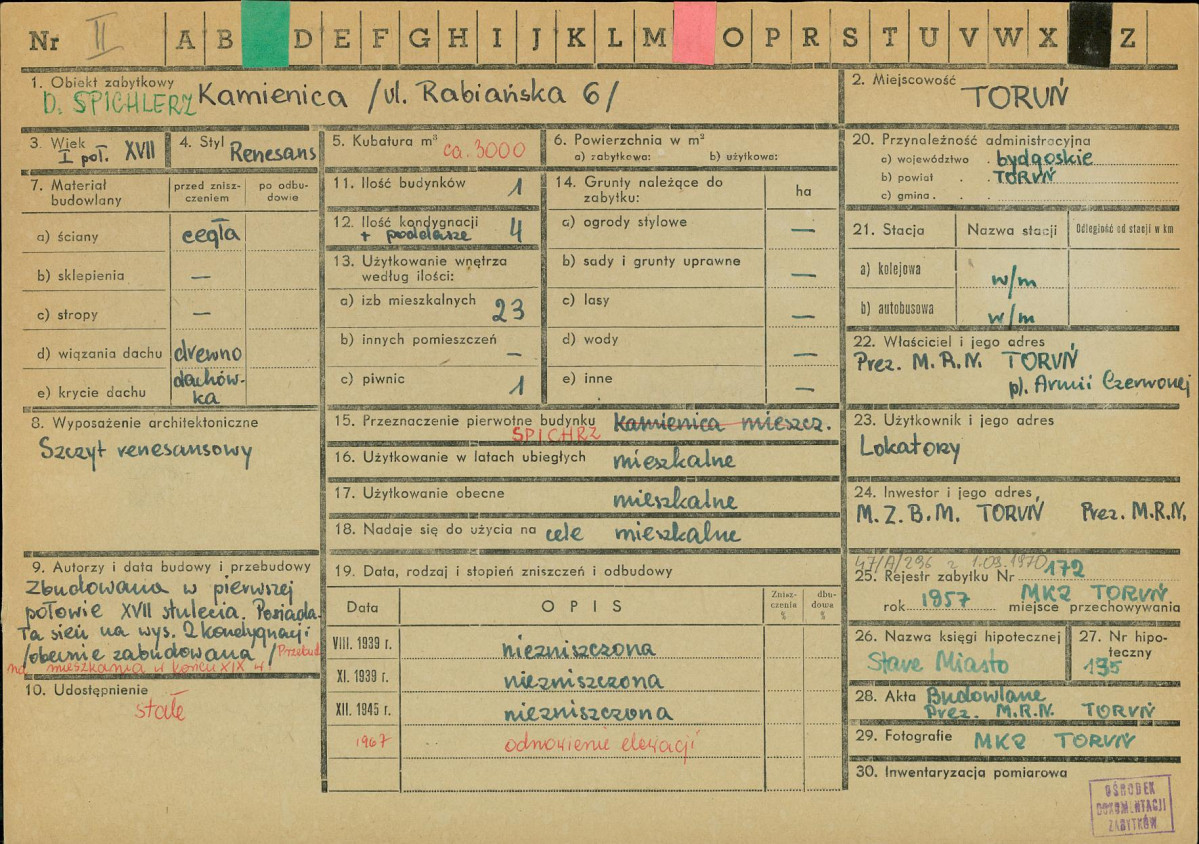 Nr II A B D E F G H I J K L M O P R S T U V W X Z
1. Obiekt zabytkowy
D. SPICHLERZ Kamienica /ul. Rabiańska 6/
2. Miejscowość
TORUŃ
3. Wiek
I poł. XVII
4. Styl
Renesans
5. Kubatura m³
ca. 3000
6. Powierzchnia w m²
a) zabytkowa: b) użytkowa:
7. Materiał budowlany
przed znisz-
czeniem
po odbu-
dowie
a) ściany cegła
b) sklepienia —
c) stropy —
d) wiązania dachu drewno
e) krycie dachu dachów-
ka
8. Wyposażenie architektoniczne
Szczyt renesansowy
9. Autorzy i data budowy i przebudowy
Zbudowana w pierwszej
połowie XVII stulecia. Posiada-
ła sień na wys. 2 kondygnacji
/obecnie zabudowana/ Przebud.
na mieszkania w końcu XIX w.
10. Udostępnienie
stałe
11. Ilość budynków 1
12. Ilość kondygnacji 4
+ poddasze
13. Użytkowanie wnętrza
według ilości:
a) izb mieszkalnych 23
b) innych pomieszczeń –
c) piwnic 1
14. Grunty należące do
zabytku:
ha
a) ogrody stylowe —
b) sady i grunty uprawne —
c) lasy —
d) wody —
e) inne —
15. Przeznaczenie pierwotne budynku Kamienica mieszcz.
SPICHRZ
16. Użytkowanie w latach ubiegłych mieszkalne
17. Użytkowanie obecne mieszkalne
18. Nadaje się do użycia na cele mieszkalne
19. Data, rodzaj i stopień zniszczeń i odbudowy
Data
OPIS
Znisz-
czenia
%
dbu-
dowa
%
VIII. 1939 r. niezniszczona
XI. 1939 r. niezniszczona
XII. 1945 r. niezniszczona
1967 odnowienie elewacji
20. Przynależność administracyjna
a) województwo bydgoskie
b) powiat TORUŃ
c) gmina
21. Stacja
Nazwa stacji
Odległość od stacji w km
a) kolejowa w/m
b) autobusowa w/m
22. Właściciel i jego adres
Prez. M.R.N. TORUŃ
pl. Armii Czerwonej
23. Użytkownik i jego adres
Lokatorzy
24. Inwestor i jego adres
M.Z.B.M. TORUŃ Prez. M.R.N.
47/A/296 z 1.09.1970
25. Rejestr zabytku Nr 172
MKZ TORUŃ
rok 1957 miejsce przechowywania
26. Nazwa księgi hipotecznej
Stare Miasto
27. Nr hipo-
teczny
195
28. Akta Budowlane
Prez. M.R.N. TORUŃ
29. Fotografie MKZ TORUŃ
30. Inwentaryzacja pomiarowa
OŚRODEK
DOKUMENTACJI
ZABYTKÓW